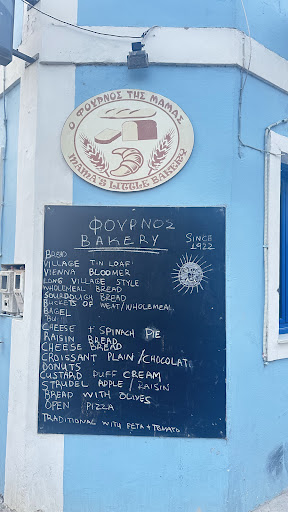 Ο ΦΟΥΡΝΟΣ ΤΗΣ ΜΑΜΑΣ
MAMA'S LITTLE BAKERY
ΦΟΥΡΝΟΣ
BAKERY
SINCE
1922
BREAD
VILLAGE TIN LOAF
VIENNA BLOOMER
LONG VILLAGE STYLE
WHOLEMEAL BREAD
SOURDOUGH BREAD
BUCKETS OF WEAT/WHOLEMEAL
BAGEL
BU
CHEESE + SPINACH PIE
RAISIN BREAD
CHEESE BREAD
CROISSANT PLAIN/CHOCOLAT
DONUTS
CUSTARD PUFF CREAM
STRUDEL APPLE/RAISIN
BREAD WITH OLIVES
OPEN PIZZA
TRADITIONAL WITH FETA + TOMATO